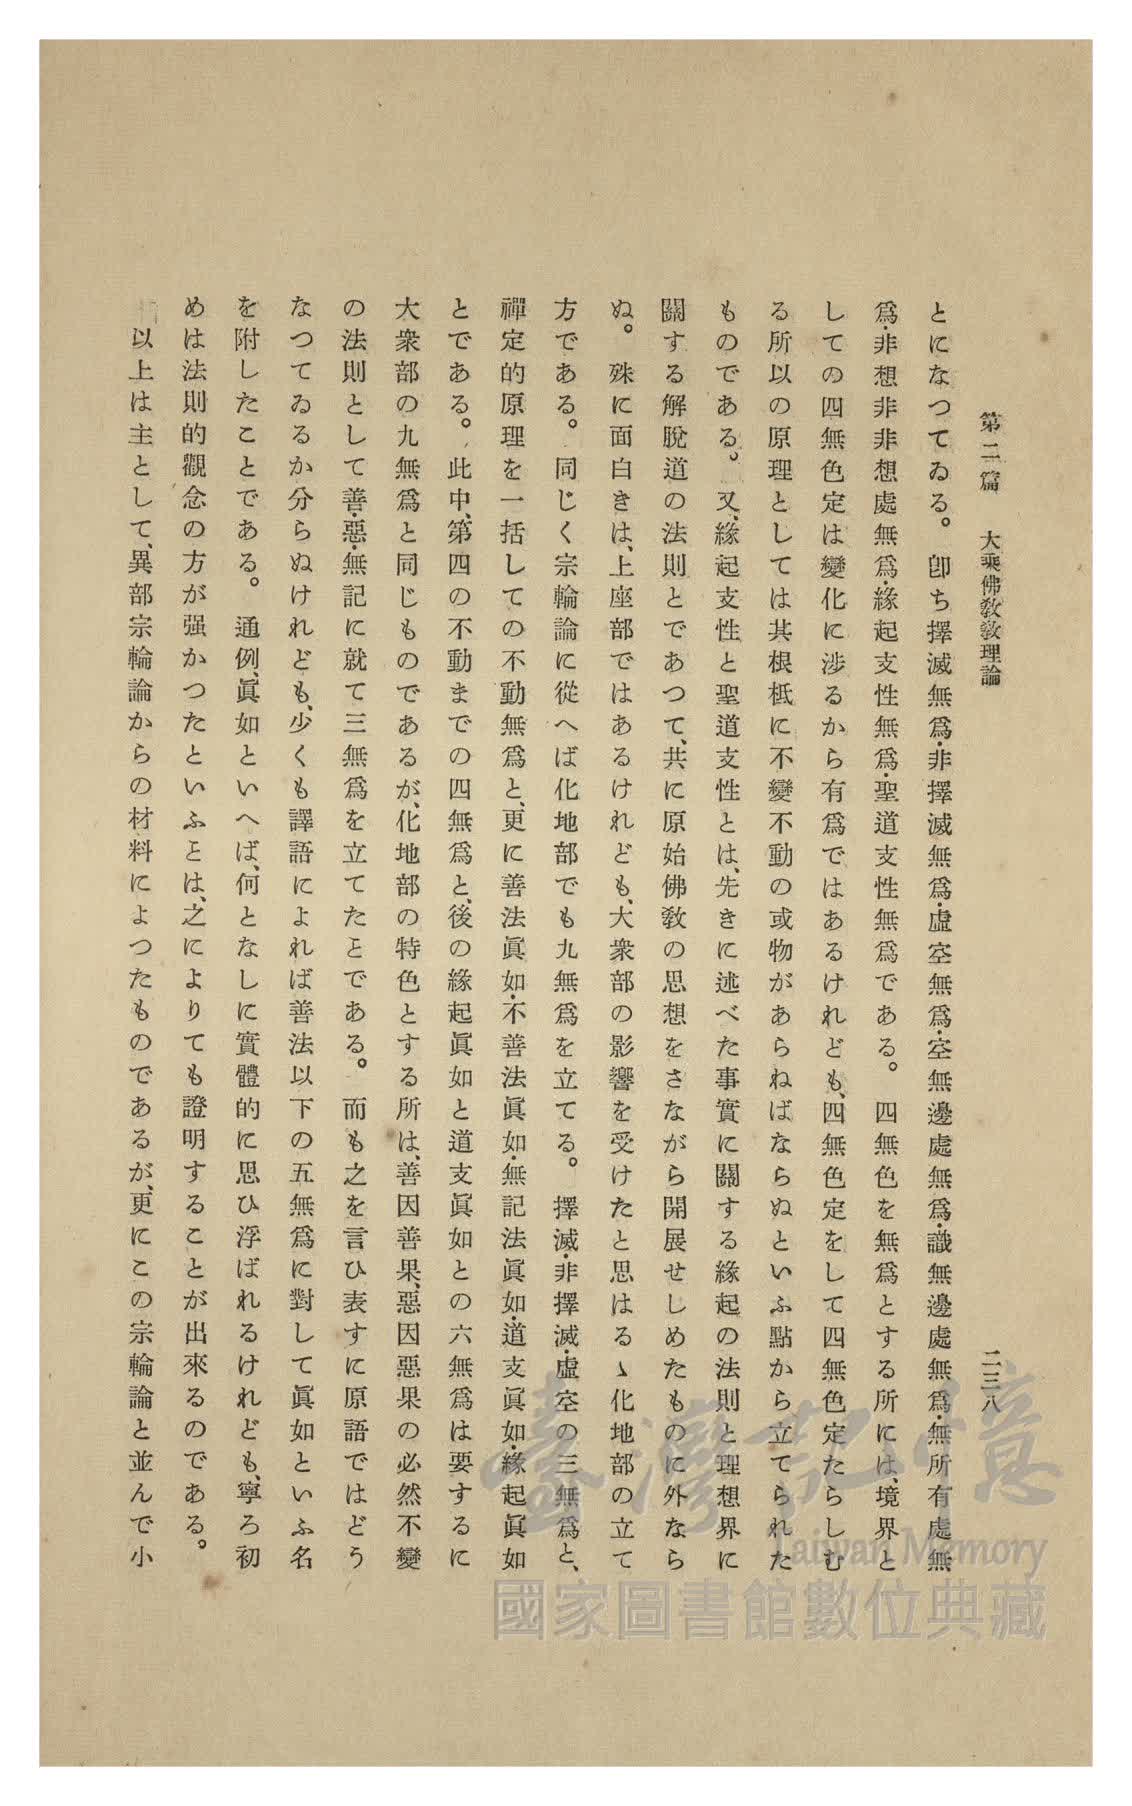 第二篇　大乘佛教敎理論　二三八
とになつてゐる。卽ち擇滅無爲・非擇滅無爲・虛空無爲・空無邊處無爲・識無邊處無爲・無所有處無
爲・非想非非想處無爲・緣起支性無爲・聖道支性無爲である。四無色を無爲とする所には、境界と
しての四無色定は變化に涉るから有爲ではあるけれども、四無色定をして四無色定たらしむ
る所以の原理としては其根柢に不變不動の或物があらねばならぬといふ點から立てられた
ものである。又、緣起支性と聖道支性とは、先きに述べた事實に關する緣起の法則と理想界に
關する解脫道の法則とであつて、共に原始佛敎の思想をさながら開展せしめたものに外なら
ぬ。殊に面白きは、上座部ではあるけれども、大衆部の影響を受けたと思はるゝ化地部の立て
方である。同じく宗輪論に從へば化地部でも九無爲を立てる。擇滅・非擇滅・虛空の三無爲と、
禪定的原理を一括しての不動無爲と、更に善法眞如・不善法眞如・無記法眞如・道支眞如・緣起眞如
とである。此中、第四の不動までの四無爲と、後の緣起眞如と道支眞如との六無爲は要するに
大衆部の九無爲と同じものであるが、化地部の特色とする所は、善因善果、惡因惡果の必然不變
の法則として善・惡・無記に就て三無爲を立てたことである。而も之を言ひ表すに原語ではどう
なつてゐるか分らぬけれども、少くも譯語によれば善法以下の五無爲に對して眞如といふ名
を附したことである。通例、眞如といへば、何となしに實體的に思ひ浮ばれるけれども、寧ろ初
めは法則的觀念の方が强かつたといふことは、之によりても證明することが出來るのである。
以上は主として、異部宗輪論からの材料によつたものであるが、更にこの宗輪論と並んで小
臺灣記憶
Taiwan Memory
國家圖書館數位典藏